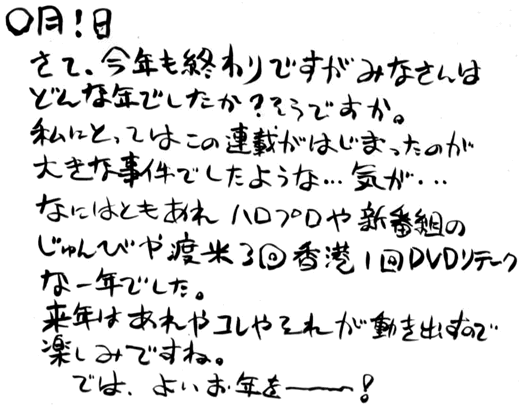 〇月!日
さて、今年も終わりですがみなさんは
どんな年でしたか?そうですか。
私にとってはこの連載がはじまったのが
大きな事件でしたような…気が‥
なにはともあれハロプロや新番組の
じゅんびや渡米3回香港1回DVDリテーク
な一年でした。
来年はあれやコレやそれが動き出すので
楽しみですね。
では、よいお年を――!